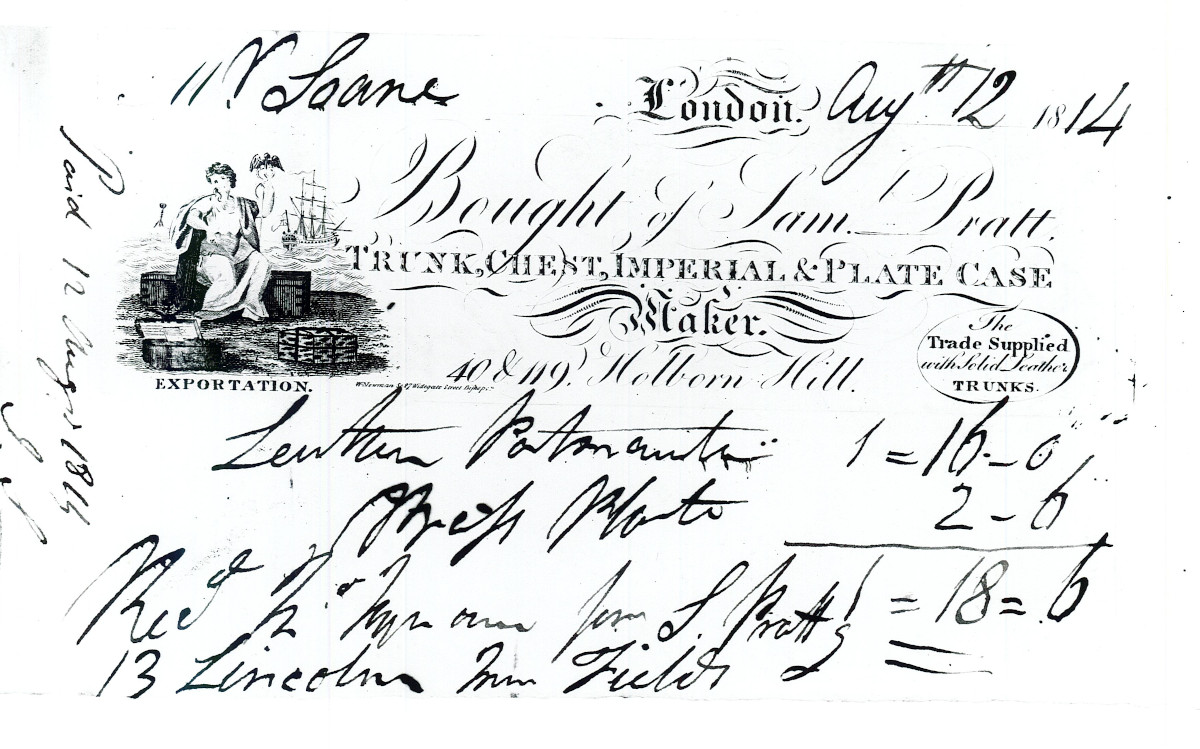 Mr. Soane
London. Augst 12 1814
Bought of Saml. Pratt,
TRUNK, CHEST, IMPERIAL & PLATE CASE
Maker.
40 & 119, Holborn Hill.
The
Trade Supplied
with Solid Leather
TRUNKS.
EXPORTATION.
Leather Portmantu 1 = 16 - 0
Brass Plate 2 - 6
Recd for S. Pratt 1 = 18 = 6
13 Lincolns Inn Fields
Paid 12 August 1814